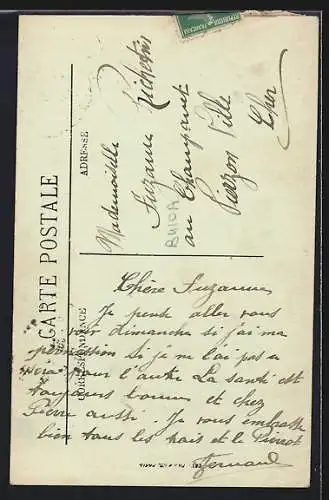 CARTE POSTALE
CORRESPONDANCE
ADRESSE
Mademoiselle
Suzanne Richetin
au Changeant
Vierzon Ville
Cher
Chère Suzanne
Je pense aller vous
voir dimanche si j'ai ma
permission Si je ne l'ai pas ce
sera pour l'autre La santé est
toujours bonne et chez
Pierre aussi. Je vous embrasse
bien tous les trois et le Pierrot
Fernand